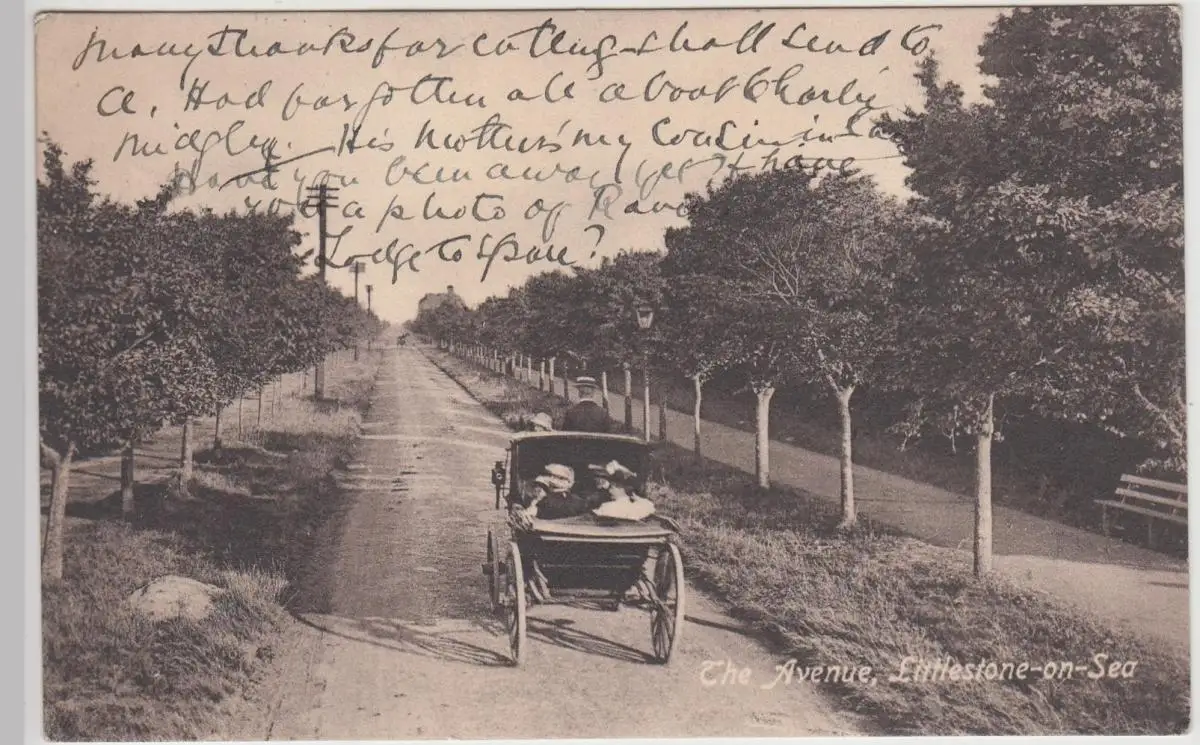 Many thanks for cutting - shall send to
a. Had forgotten all about Charlie
Midgley. His Mother's my Cousin in La
Have you been away yet? have
you a photo of
Lodge to spare?
The Avenue, Littlestone-on-Sea